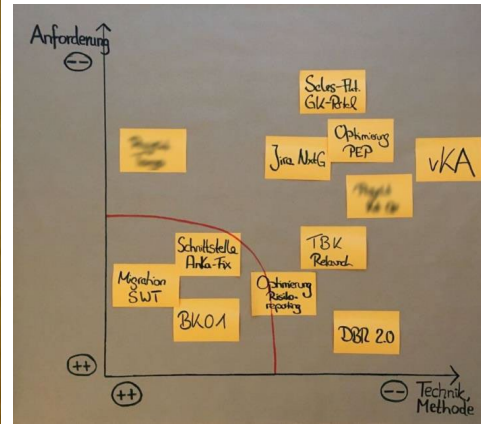 Anforderung
--
Sales-Plat.
GK-Portal
Optimierung
PEP
Jira NxtG
vKA
TBK
Relaunch
Schnittstelle
AnKa-Fix
Migration
SWT
Optimierung
Risiko-
reporting
BK01
DBR 2.0
++
++
--
Technik,
Methode